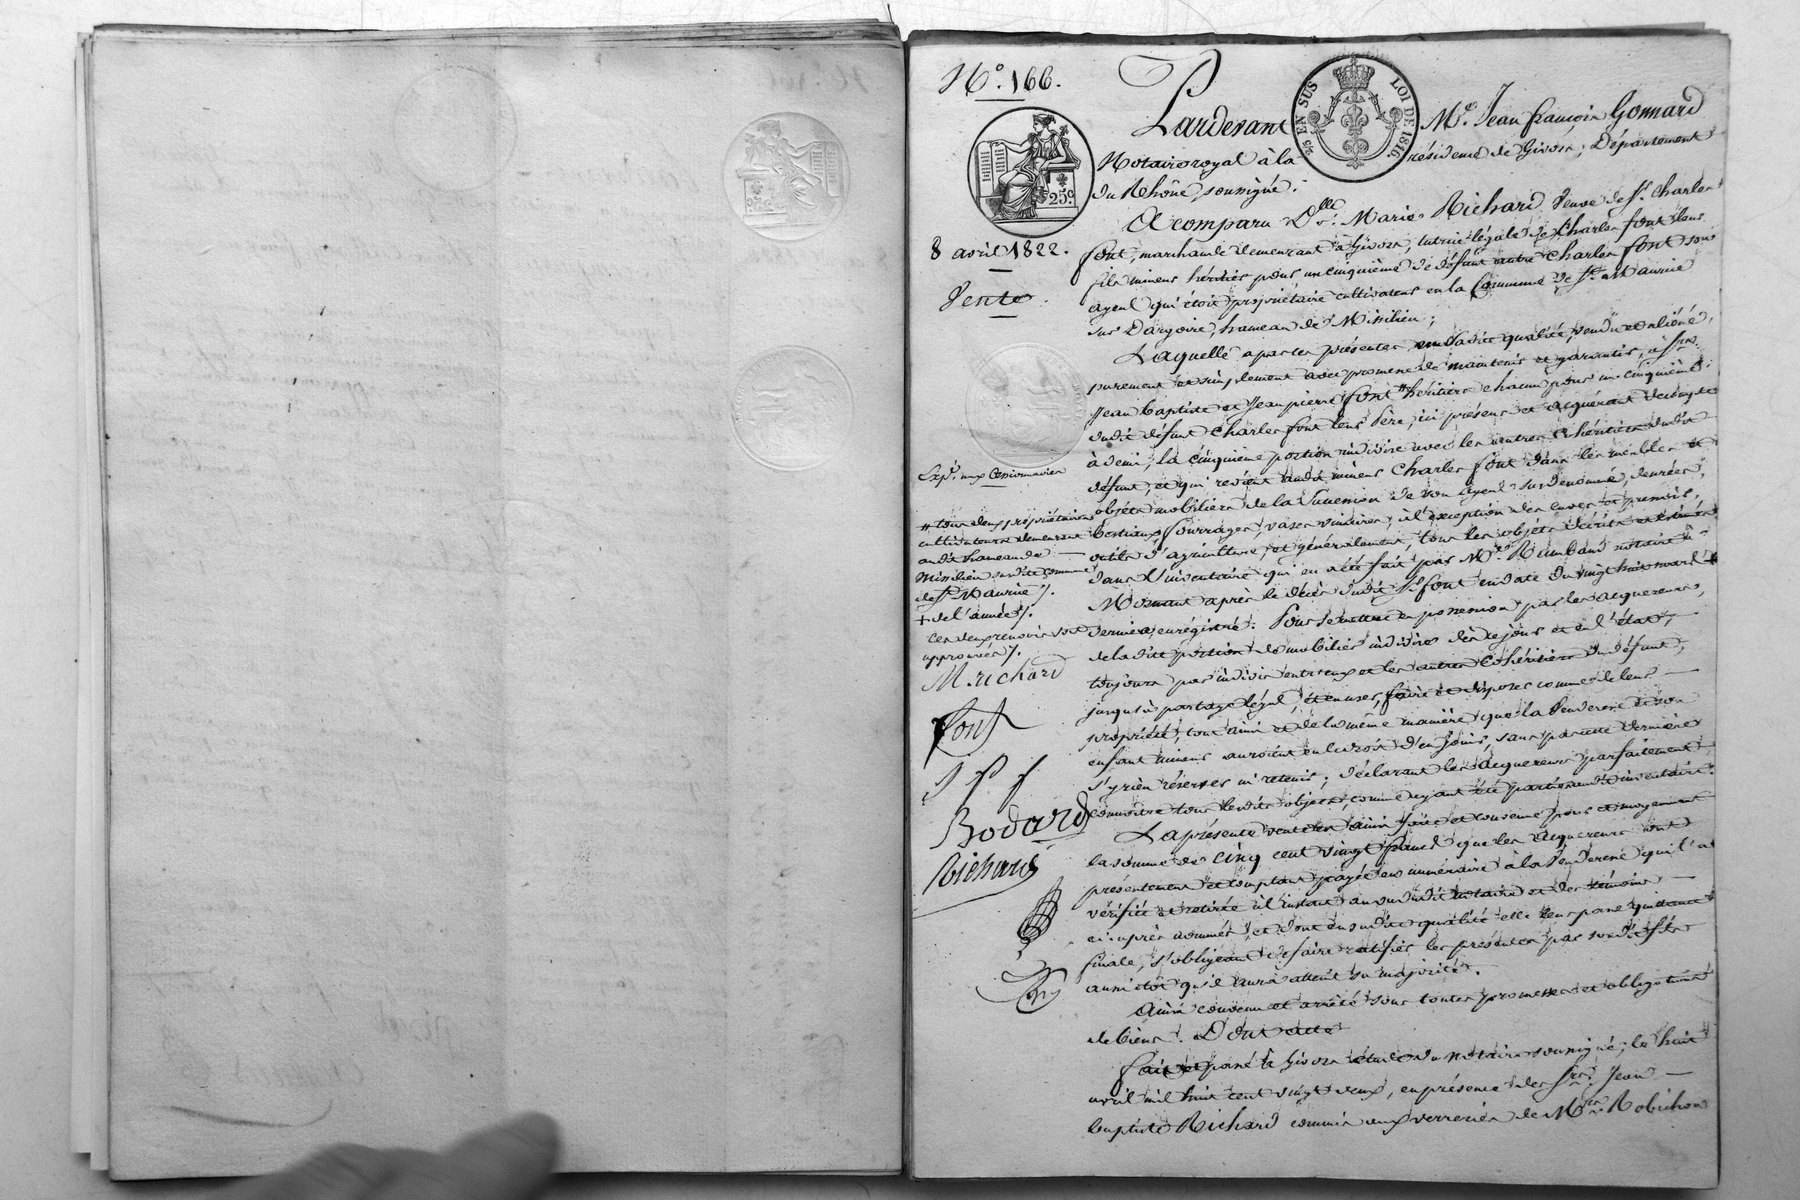 N.º 166.
EN SUS
LOI DE 1816.
25c
8 avril 1822.
Vente.
Pardevant Me. Jean françois Gonnard
Notaire royal à la résidence de Givors, Département
du Rhône, soussigné.
A comparu Dlle. Marie Richard veuve de Sr. Charles
font, marchande demeurant à Givors, tutrice légale de Charles font leur
fils mineur héritier pour un cinquième de défunt autre Charles font son
ayeul qui étoit propriétaire cultivateur en la Commune de St. Maurice
sur Dargoire, hameau de Missilieu;
Laquelle a par ces présentes, en sadite qualité, vendu et aliéné,
purement et simplement avec promesse de maintenir et garantir, à Srs.
Jean Baptiste et Jean pierre font # héritiers chacun pour un cinquième
dudit défunt Charles font leur Père, ici présens et acquérant
à demi, la cinquième portion indivise avec les autres Cohéritiers dudit
défunt, et qui revient audit mineur Charles font dans les meubles et
objets mobiliers de la Succession de son ayeul susdénommé, denrées,
bestiaux, fourrages, vases vinaires, à l'exception des cuves et pressoir,
outils d'agriculture, et généralement, tous les objets décrits et estimés
dans l'inventaire qui en a été fait par Me. Rimbaud notaire à
Mornant après le décès dudit Sr. font en date du vingt huit mars +
dernier, enrégistré. Pour se mettre en possession par les acquereurs,
de ladite portion de mobilier indivise dès ce jour et en l'état,
toujours par indivis entr'eux et les autres Cohéritiers du défunt,
jusqu'à partage légal, et en user, faire et disposer comme de leur
propriété, tout ainsi et de la même manière que la Venderesse et son
enfant mineur auroient eu le droit d'en jouir, sans par cette dernière
s'y rien réserver ni retenir; déclarant les acquereurs parfaitement
connoitre tous lesdits objets, comme ayant été parties audit inventaire.
La présente vente est ainsi faite et convenue pour et moyennant
la somme de cinq cent vingt francs que les acquereurs ont
présentement et comptant payée en numéraire à la Venderesse qui l'a
vérifiée et retirée à l'instant au vu dudit notaire et des témoins
ci-après nommés, et dont en sadite qualité elle leur passe quittance
finale, s'obligeant de faire ratifier les présentes par son dit fils
aussitôt qu'il aura atteint sa majorité.
Ainsi convenu et arrêté sous toutes promesses et obligations
de biens. Dont acte
fait et passé à Givors étude du notaire soussigné, le huit
avril mil huit cent vingt deux, en présence des Srs. Jean
baptiste Richard commis aux verreries de Mrs. Robichon
Expé. aux Cessionnaires
# tous deux propriétaires
cultivateurs demeurant
audit hameau de
Missilieu susdite commune
de St. Maurice /.
+ de l'année /.
Ces deux renvois sont
approuvés /.
M. richard
font
J P f
Bodard
Richard